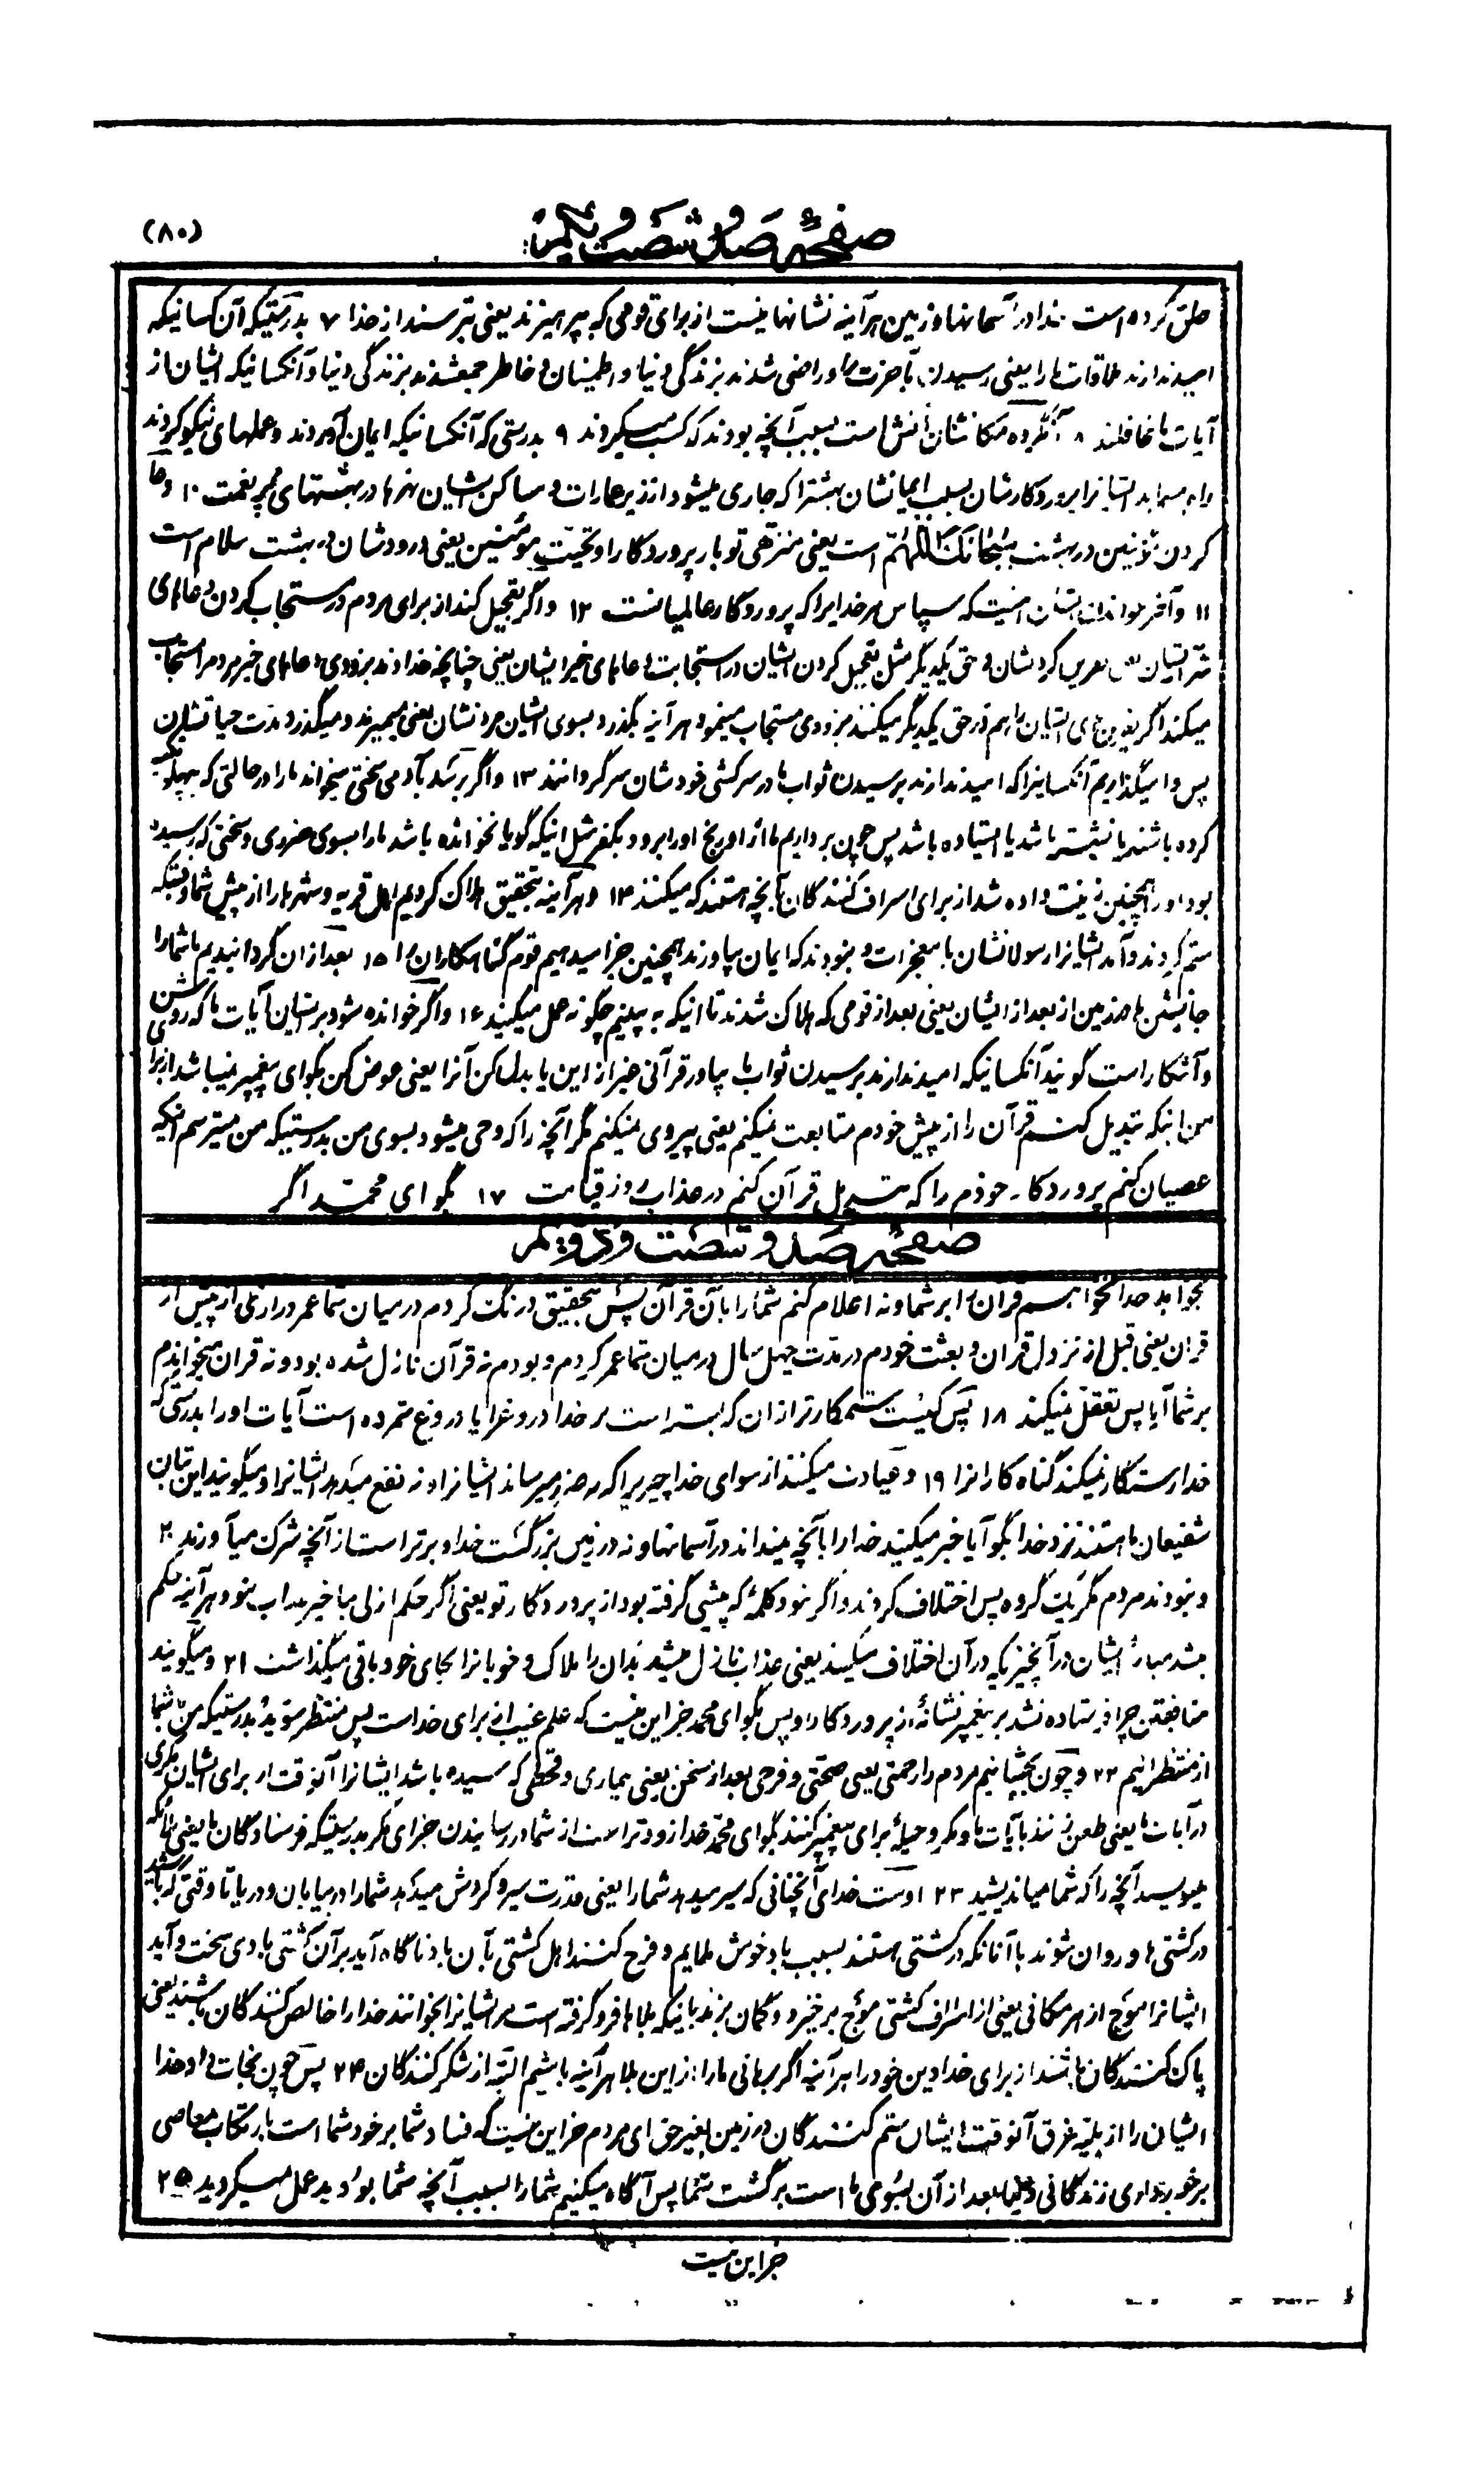 (۸۰)
صفحه صد و شصت و یکم
خلق کرده است خدا در آسمانها و زمین هر آینه نشانهاینست از برای قومی که بپرهیزند یعنی بترسند از خدا ۷ بدرستیکه آن کسانیکه
امید ندارند ملاقات ما را یعنی رسیدن بآخرت را و راضی شدند بزندگی دنیا و اطمینان و خاطر جمع شدند بزندگی دنیا و آنکسانیکه ایشان از
آیات ما غافلند ۸ آنگروه مکانشان آتش است بسبب آنچه بودند که کسب میکردند ۹ بدرستی که آنکسانیکه ایمان آوردند و عملهای نیکو کردند
راه مینماید ایشانرا پروردگارشان بسبب ایمانشان بهشترا که جاری میشود از زیر عمارات و مساکن ایشان نهرها در بهشتهای پر نعمت ۱۰ و دعا
کردن مؤمنین در بهشت سبحانک اللهم است یعنی منزهی تو بار پروردگارا و تحیت مؤمنین یعنی درودشان در بهشت سلام است
۱۱ و آخر خواندن ایشان اینست که سپاس مر خدایرا که پروردگار عالمیانست ۱۲ و اگر تعجیل کند از برای مردم در مستجاب کردن دعاهای
شر ایشان نفرین کردنشان در حق یکدیگر مثل تعجیل کردن ایشان در استجابت دعاهای خیر ایشان یعنی چنانچه خداوند بزودی دعاهای خیر مردمرا مستجاب
میکند اگر نفرین های ایشان را هم در حق یکدیگر میکنند بزودی مستجاب مینمود هر آینه بگذرد بسوی ایشان مردنشان یعنی میمیرند و میگذرد مدت حیاتشان
پس وا میگذاریم آنکسانیرا که امید ندارند برسیدن ثواب ما در سرکشی خودشان سرگردانند ۱۳ و اگر برسد بآدمی سختی میخواند ما را در حالتی که بپهلو تکیه
کرده باشند یا نشسته باشد یا ایستاده باشد پس چون برداریم ما از او رنج او را برود بکفر مثل اینکه گویا نخوانده باشد ما را بسوی ضرری و سختی که رسیده
بود او را همچنین زینت داده شد از برای اسراف کنندگان آنچه هستند که میکنند ۱۴ و هر آینه بتحقیق هلاک کردیم اهل قریه و شهرها را از پیش شما وقتیکه
ستم کردند و آمد ایشانرا رسولانشان با معجزات و نبودند که ایمان بیاورند همچنین جزا میدهیم قوم گناهکاران را ۱۵ بعد از ان گردانیدیم ما شما را
جانشین ها در زمین از بعد از ایشان یعنی بعد از قومی که هلاک شدند تا اینکه به بینیم چگونه عمل میکنید ۱۶ و اگر خوانده شود بر ایشان آیات ما که روشن
و آشکار است گویند آنکسانیکه امید ندارند برسیدن ثواب ما بیاور قرآنی غیر از این یا بدل کن آنرا یعنی عوض کن بگو ای پیغمبر نمیباشد از برای
من اینکه تبدیل کنم قرآن را از پیش خودم متابعت نمیکنم یعنی پیروی نمیکنم مگر آنچه را که وحی میشود بسوی من بدرستیکه من میترسم اینکه
عصیان کنم پروردگار خودم را که تبدیل قرآن کنم در عذاب روز قیامت ۱۷ بگو ای محمد اگر
صفحه صد و شصت و دویم
بخواهد خدا نخوانم قرآن را بر شما و نه اعلام کنم شما را بآن قرآن پس بتحقیق درنگ کردم در میان شما عمر درازی از پیش از
قرآن یعنی قبل از نزول قرآن و بعثت خودم در مدت چهل سال در میان شما عمر کردم و بودم نه قرآن نازل شده بود و نه قرآن میخواندم
بر شما آیا پس تعقل نمیکنید ۱۸ پس کیست ستمکارتر از ان که ببسته است بر خدا دروغرا یا دروغ شمرده است آیات او را بدرستی که
خدا رستگار نمیکند گناه کارانرا ۱۹ و عبادت میکنند از سوای خدا چیزیرا که نه ضرر میرساند ایشانرا و نه نفع میدهد ایشانرا و میگویند این بتان
شفیعان ما هستند نزد خدا بگو آیا خبر میکنید خدا را بآنچه نمیداند در آسمانها و نه در زمین بزرگست خدا و برتر است از آنچه شرک میآورند ۲۰
و نبودند مردم مگر یک گروه پس اختلاف کردند و اگر نبود کلمهٔ که پیشی گرفته بود از پروردگار تو یعنی اگر حکم ازلی بتاخیر عذاب نبود هر آینه حکم
میشد میانهٔ ایشان در آنچیزیکه در آن اختلاف میکنند یعنی عذاب نازل میشد بدان را هلاک و خوبانرا بجای خود باقی میگذاشت ۲۱ و میگویند
منافقین چرا فرستاده نشد بر پیغمبر نشانهٔ از پروردگار او پس بگو ای محمد جز این نیست که علم غیب از برای خداست پس منتظر شوید بدرستیکه من با شما
از منتظرانیم ۲۲ و چون بچشانیم مردم را رحمتی یعنی صحتی و فرحی بعد از سختی یعنی بیماری و قحطی که رسیده باشد ایشانرا آنوقت از برای ایشان مکری
در آیات ما یعنی طعن زنند بآیات ما و مکر و حیلهٔ برای پیغمبر کنند بگو ای محمد خدا زودتر است از شما در رسانیدن جزای مکر بدرستیکه فرستادگان ما یعنی ملائکه
مینویسند آنچه را که شما میاندیشید ۲۳ اوست خدای آنچنانی که سیر میدهد شما را یعنی قدرت سیر و گردش میدهد شما را در بیابان و دریا تا وقتی که باشید
در کشتی ها و روان شوند با آنانکه در کشتی هستند بسبب باد خوش ملایم و فرح کنند اهل کشتی بآن باد ناگاه آید بر آن کشتی بادی سخت و آید
ایشانرا موج از هر مکانی یعنی از اطراف کشتی موج بر خیزد و گمان برند باینکه بلا ها فرو گرفته است مر ایشانرا بخوانند خدا را خالص کنندگان باشند یعنی
پاک کنندگان باشند از برای خدا دین خود را هر آینه اگر برهانی ما را از این بلا هر آینه باشیم البته از شکر کنندگان ۲۴ پس چون نجات داد خدا
ایشان را از بلیه غرق آنوقت ایشان ستم کنندگان در زمین بغیر حق ای مردم جز این نیست که فساد شما بر خود شما است بارتکاب معاصی
برخورداری زندگانی دنیا بعد از آن بسوی ما است برگشت شما پس آگاه میکنیم شما را بسبب آنچه شما بودید عمل میکردید ۲۵
جز این نیست